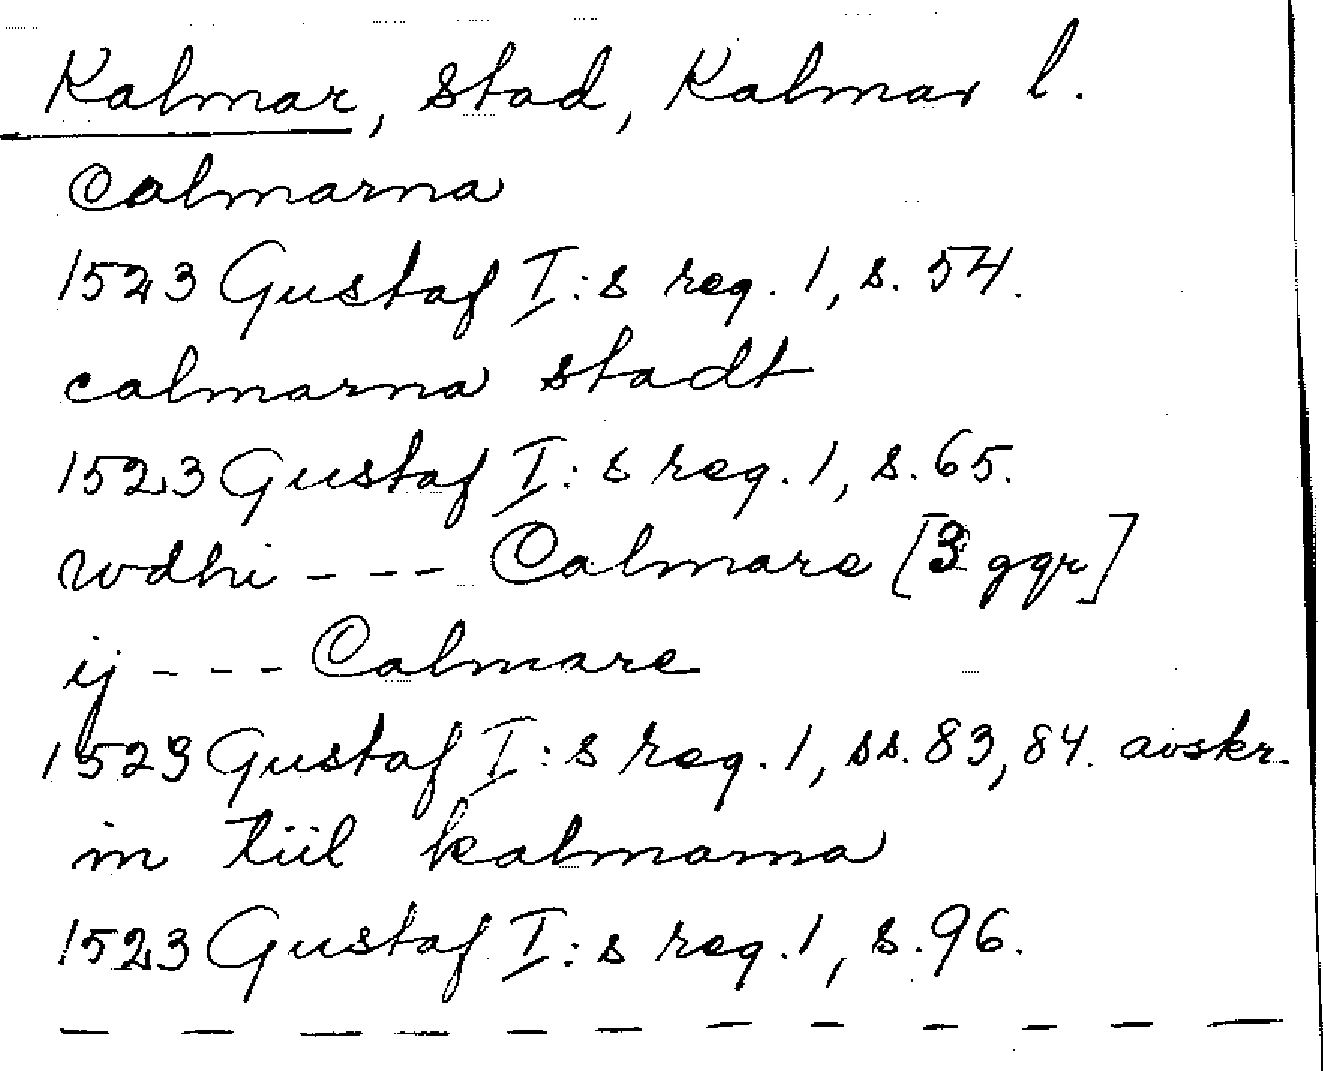 Kalmar, stad, Kalmar l.
Calmarna
1523 Gustaf I:s reg. 1, s. 54.
calmarna stadt
1523 Gustaf I:s reg. 1, s. 65.
wdhi - - - Calmare [3 ggr]
ij - - - Calmare
1523 Gustaf I:s reg. 1, ss. 83, 84. avskr.
in tiil kalmarna
1523 Gustaf I:s reg. 1, s. 96.